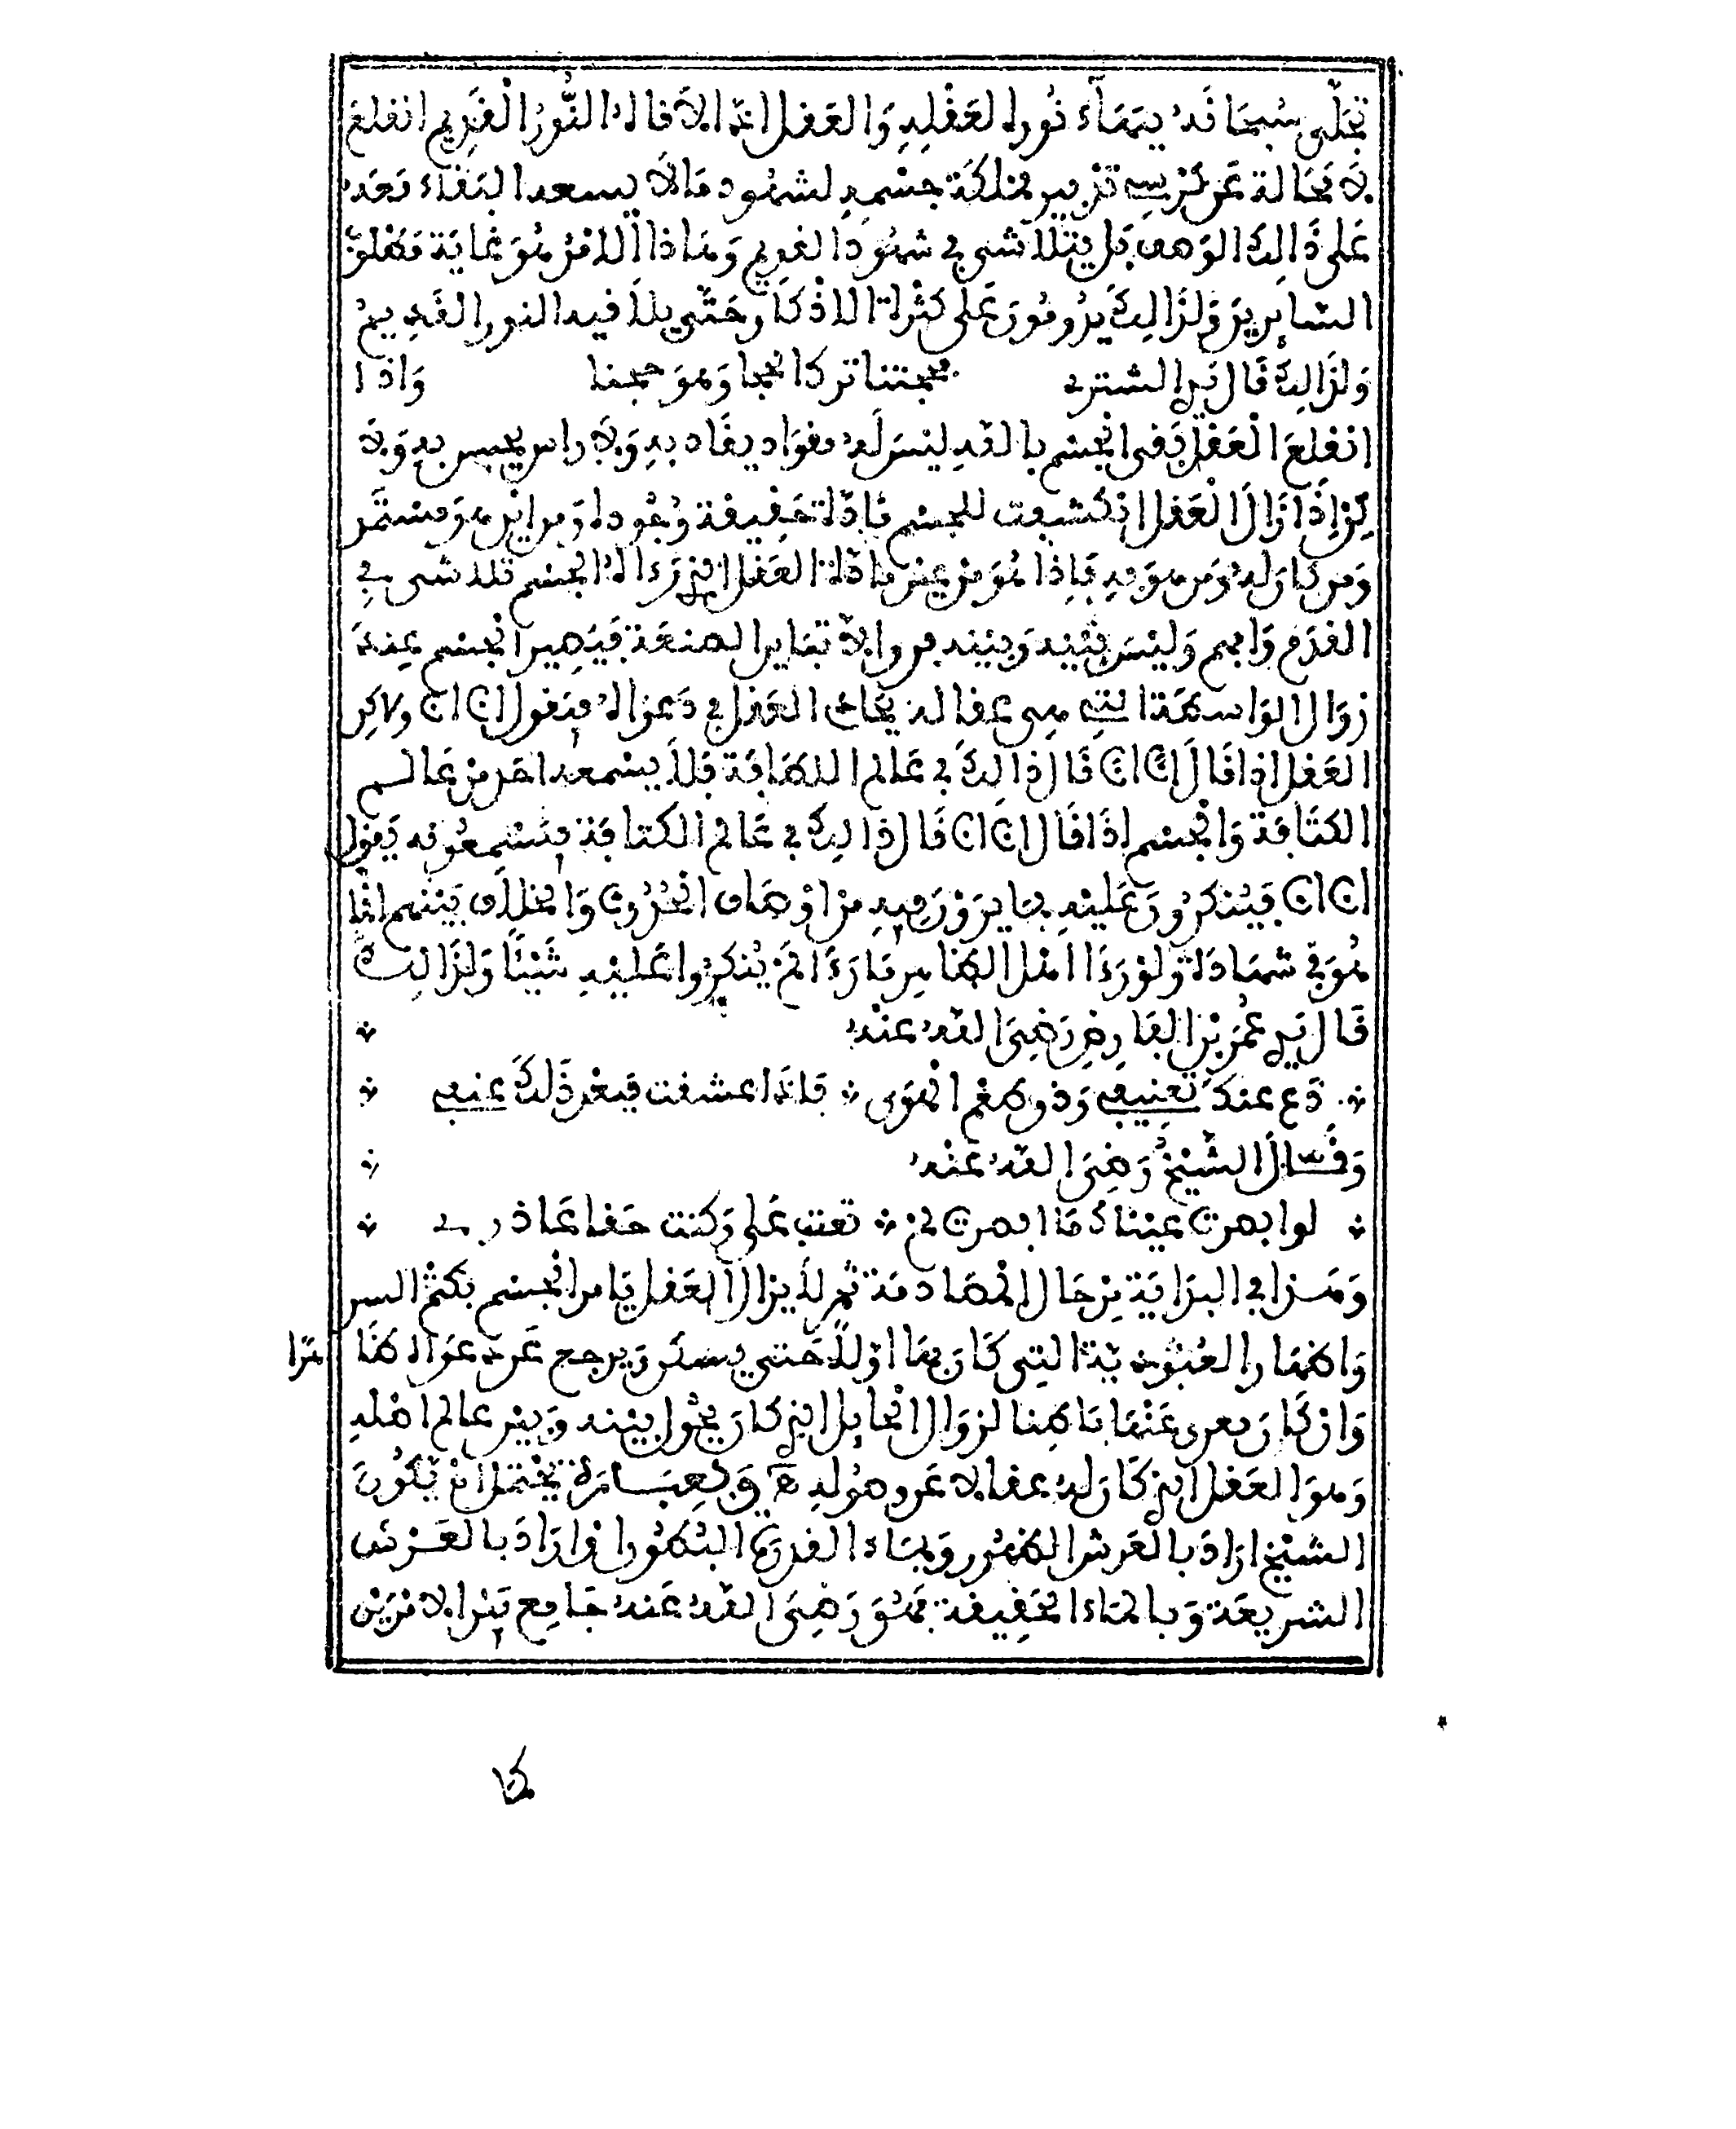 تجلى سبحانه بيهاء نوره لعقله والعقل إذا لاقاه النور القديم انقلع
لا محالة عن كرسي تدبير مملكة جسمه لشهود ما لا يسعه البقاء معه
على ذالك الوصف بل يتلاشى في شهود القديم وهاذا الامر هو غاية مطلوب
السايرين ولذالك يدومون على كثرة الاذكار حتى يلافيه النور القديم
ولذالك قال فيه الششتري محجتنا ترك الحجا وهو حجنا وإذا
انقلع العقل بقى الجسم بالله ليس له فؤاد يفاد به ولا راس يحبس به ولا
كن إذا زال العقل انكشفت للجسم ماذة حقيقة وجوده ومن اين هو ومستمد
ومن كان له ومن هو به فإذا هو من عين ماذة العقل الذي رءاه الجسم تلاشى في
القدم وامحى وليس بينه وبينه فرق إلا تغاير الصنعة فيصير الجسم عند
زوال الواسطة التي هي عقاله يحاكى العقل في دعواه فيقول ان ان ولاكن
العقل إذا قال ان ان قال ذالك في عالم اللطافة فلا يسمعه احد من عالم
الكثافة والجسم إذا قال ان ان قال ذالك في عالم الكثافة فيسمعونه يقول
ان ان فينكرون عليه بما يرون فيه من اوصاف الحدوث والخلاف بينهم إنما
هو في شهادة ولو رءا اهل الظاهر ما رءا لم ينكروا عليه شيئا ولذالك
قال فيه عمر بن الفارض رضي الله عنه
دع عنك تعنيفي وذق طعم الهوى فإذا عشقت فبعد ذلك عنف
وقال الشيخ رضي الله عنه
لو ابصرت عيناك ما ابصرت لم تعتب علي وكنت حقا عاذري
وهذا في البداية من حال المصادمة ثم لا يزال العقل يامر الجسم بكتم السر
واظهار العبودية التي كان بها اولا حتى يسكن ويرجع عن دعواه هذا
وان كان معرى عنها باطنا لزوال الحايل الذي كان يحول بينه وبين عالم اصله
وهو العقل الذي كان له عقالا عن وصوله وبعبارة يحتمل ان يكون
الشيخ اراد بالعرش الظهور وبماء القدرة البطون او اراد بالعرش
الشريعة وبالماء الحقيقة فهو رضي الله عنه جامع بين الامرين